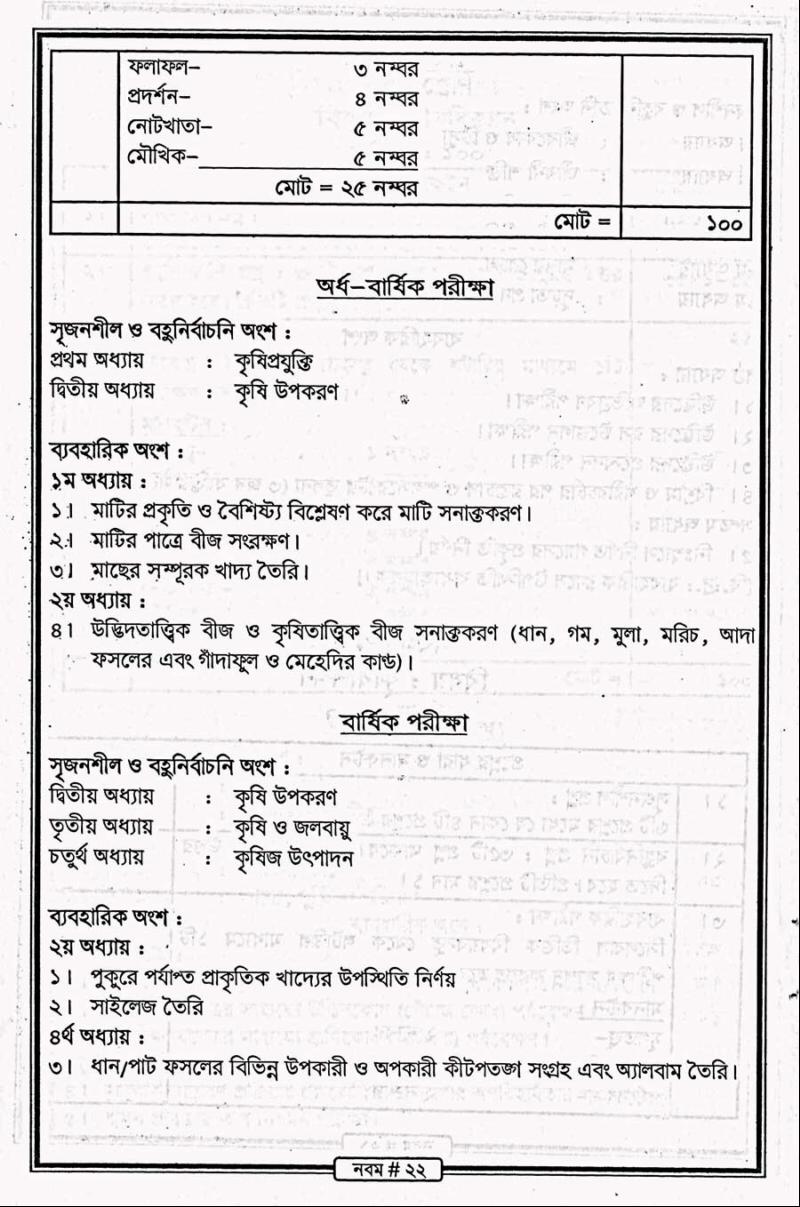 ফলাফল– ৩ নম্বর
প্রদর্শন– ৪ নম্বর
নোটখাতা– ৫ নম্বর
মৌখিক– ৫ নম্বর
মোট = ২৫ নম্বর
মোট = ১০০
অর্ধ–বার্ষিক পরীক্ষা
সৃজনশীল ও বহুনির্বাচনি অংশ :
প্রথম অধ্যায় : কৃষিপ্রযুক্তি
দ্বিতীয় অধ্যায় : কৃষি উপকরণ
ব্যবহারিক অংশ :
১ম অধ্যায় :
১। মাটির প্রকৃতি ও বৈশিষ্ট্য বিশ্লেষণ করে মাটি সনাক্তকরণ।
২। মাটির পাত্রে বীজ সংরক্ষণ।
৩। মাছের সম্পূরক খাদ্য তৈরি।
২য় অধ্যায় :
৪। উদ্ভিদতাত্ত্বিক বীজ ও কৃষিতাত্ত্বিক বীজ সনাক্তকরণ (ধান, গম, মুলা, মরিচ, আদা
ফসলের এবং গাঁদাফুল ও মেহেদির কাণ্ড)।
বার্ষিক পরীক্ষা
সৃজনশীল ও বহুনির্বাচনি অংশ :
দ্বিতীয় অধ্যায় : কৃষি উপকরণ
তৃতীয় অধ্যায় : কৃষি ও জলবায়ু
চতুর্থ অধ্যায় : কৃষিজ উৎপাদন
ব্যবহারিক অংশ :
২য় অধ্যায় :
১। পুকুরে পর্যাপ্ত প্রাকৃতিক খাদ্যের উপস্থিতি নির্ণয়
২। সাইলেজ তৈরি
৪র্থ অধ্যায় :
৩। ধান/পাট ফসলের বিভিন্ন উপকারী ও অপকারী কীটপতঙ্গ সংগ্রহ এবং অ্যালবাম তৈরি।
নবম # ২২